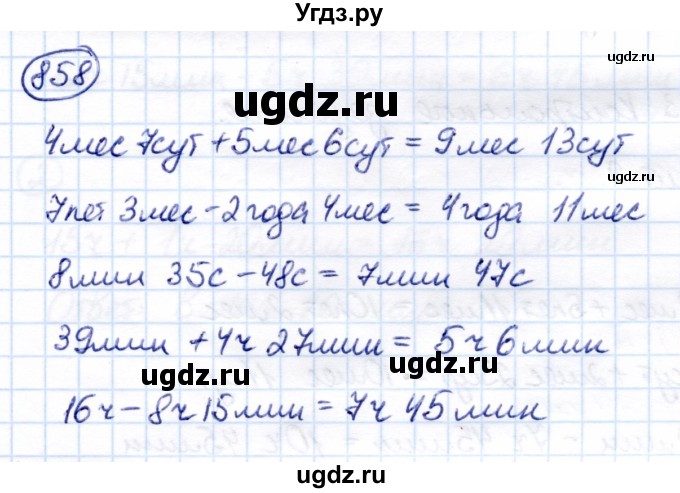 Угдз.ру
ugdz.ru
858
ugdz.ru
ugdz.ru
4мес 7сут + 5мес 6сут = 9мес 13сут
ugdz.ru
7лет 3мес - 2 года 4мес = 4 года 11мес
8мин 35с - 48с = 7мин 47с
39мин + 4ч 27мин = 5ч 6мин
ugdz.ru
ugdz.ru
16ч - 8ч 15мин = 7ч 45мин
ugdz.ru